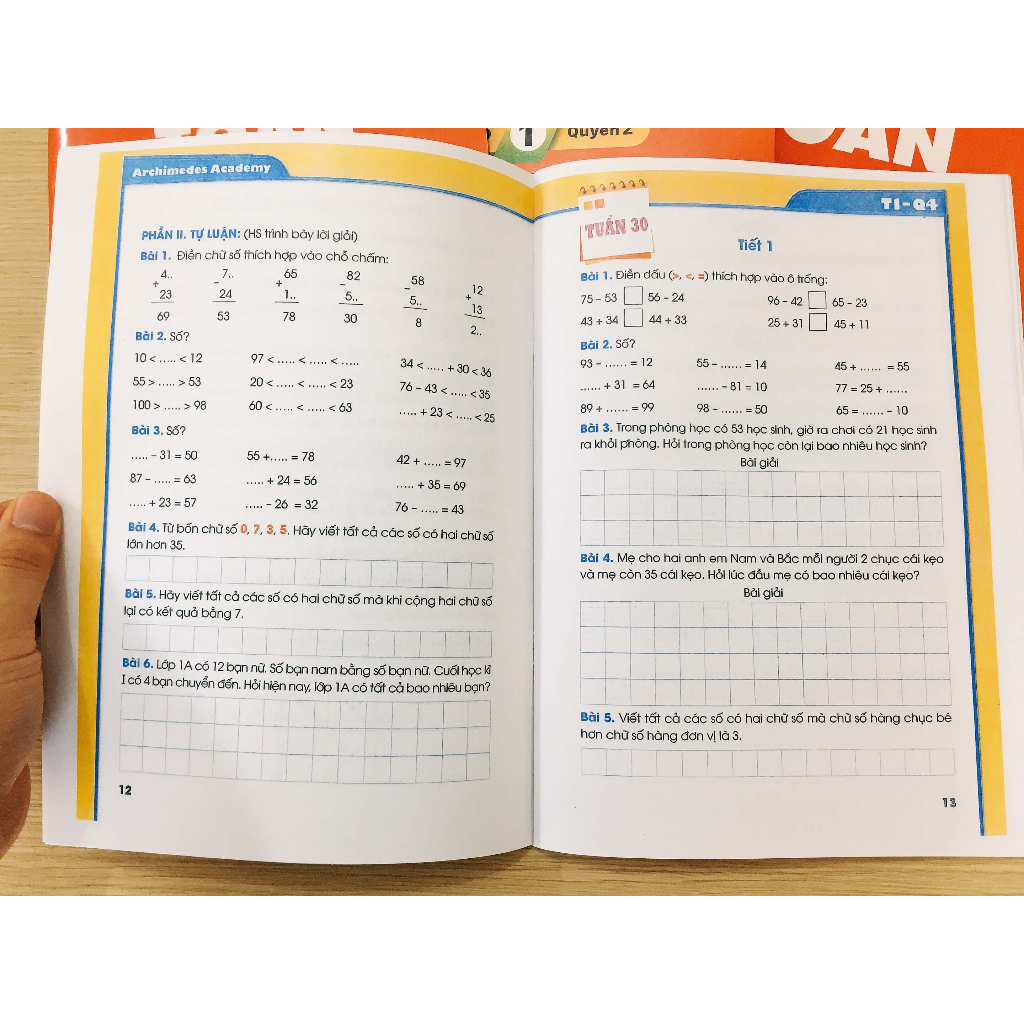 1 Quyển 2
Archimedes Academy
PHẦN II. TỰ LUẬN: (HS trình bày lời giải)
Bài 1. Điền chữ số thích hợp vào chỗ chấm:
4.. 7.. 65 82 58 12
+ − + − − +
23 24 1.. 5.. 5.. 13
69 53 78 30 8 2..
Bài 2. Số?
10 < ..... < 12 97 < ..... < ..... < ..... 34 < ..... + 30 < 36
55 > ..... > 53 20 < ..... < ..... < 23 76 − 43 < ..... < 35
100 > ..... > 98 60 < ..... < ..... < 63 ..... + 23 < ..... < 25
Bài 3. Số?
..... − 31 = 50 55 +..... = 78 42 + ..... = 97
87 − ..... = 63 ..... + 24 = 56 ..... + 35 = 69
..... + 23 = 57 ..... − 26 = 32 76 − ..... = 43
Bài 4. Từ bốn chữ số 0, 7, 3, 5. Hãy viết tất cả các số có hai chữ số
lớn hơn 35.
Bài 5. Hãy viết tất cả các số có hai chữ số mà khi cộng hai chữ số
lại có kết quả bằng 7.
Bài 6. Lớp 1A có 12 bạn nữ. Số bạn nam bằng số bạn nữ. Cuối học kì
I có 4 bạn chuyển đến. Hỏi hiện nay, lớp 1A có tất cả bao nhiêu bạn?
12
T1-Q4
TUẦN 30
Tiết 1
Bài 1. Điền dấu (>, <, =) thích hợp vào ô trống:
75 − 53 56 − 24 96 − 42 65 − 23
43 + 34 44 + 33 25 + 31 45 + 11
Bài 2. Số?
93 − ...... = 12 55 − ...... = 14 45 + ...... = 55
...... + 31 = 64 ...... − 81 = 10 77 = 25 + ......
89 + ...... = 99 98 − ...... = 50 65 = ...... − 10
Bài 3. Trong phòng học có 53 học sinh, giờ ra chơi có 21 học sinh
ra khỏi phòng. Hỏi trong phòng học còn lại bao nhiêu học sinh?
Bài giải
Bài 4. Mẹ cho hai anh em Nam và Bắc mỗi người 2 chục cái kẹo
và mẹ còn 35 cái kẹo. Hỏi lúc đầu mẹ có bao nhiêu cái kẹo?
Bài giải
Bài 5. Viết tất cả các số có hai chữ số mà chữ số hàng chục bé
hơn chữ số hàng đơn vị là 3.
13